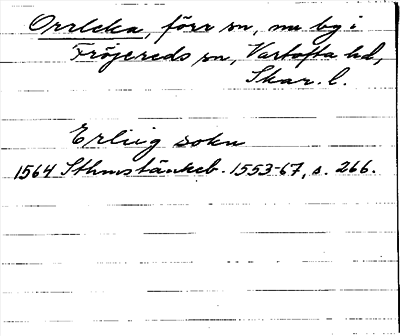 Orrleka, förr sn, nu by i
Fröjereds sn, Vartofta hd,
Skar. l.
Erliig sokn
1564 Sthmstänkeb. 1553-67, s. 266.